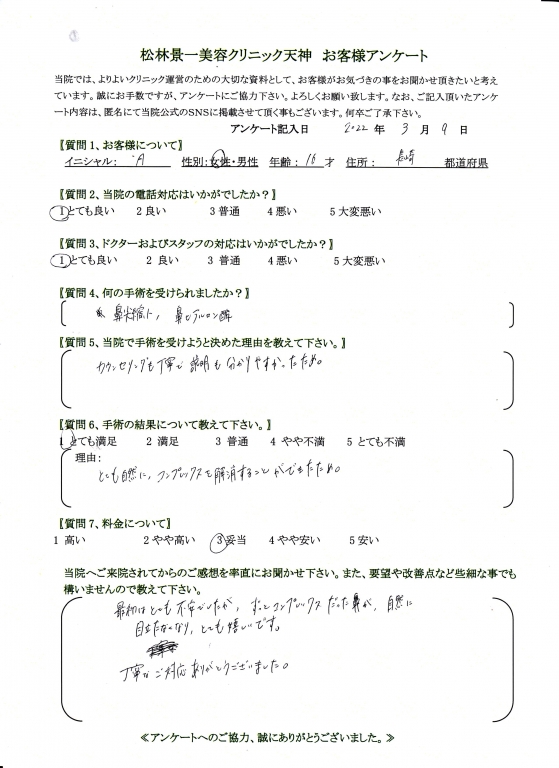 松林景一美容クリニック天神　お客様アンケート
当院では、よりよいクリニック運営のための大切な資料として、お客様がお気づきの事をお聞かせ頂きたいと考え
ています。誠にお手数ですが、アンケートにご協力下さい。よろしくお願い致します。なお、ご記入頂いたアンケ
ート内容は、匿名にて当院公式のSNSに掲載させて頂く事もございます。何卒ご了承下さい。
アンケート記入日　2022 年　3 月　9 日
〖質問 1、お客様について〗
イニシャル： A　性別：女性・男性　年齢： 18 才　住所： 長崎　都道府県
〖質問 2、当院の電話対応はいかがでしたか？〗
1 とても良い　2 良い　3 普通　4 悪い　5 大変悪い
〖質問 3、ドクターおよびスタッフの対応はいかがでしたか？〗
1 とても良い　2 良い　3 普通　4 悪い　5 大変悪い
〖質問 4、何の手術を受けられましたか？〗
鼻尖縮小, 鼻ヒアルロン酸
〖質問 5、当院で手術を受けようと決めた理由を教えて下さい。〗
カウンセリングも丁寧で 説明も分かりやすかったため。
〖質問 6、手術の結果について教えて下さい。〗
1 とても満足　2 満足　3 普通　4 やや不満　5 とても不満
理由：
とても自然に, コンプレックスを解消することができたため。
〖質問 7、料金について〗
1 高い　2 やや高い　3 妥当　4 やや安い　5 安い
当院へご来院されてからのご感想を率直にお聞かせ下さい。また、要望や改善点など些細な事でも
構いませんので教えて下さい。
最初はとても不安でしたが, ずっとコンプレックスだった鼻が, 自然に
目立たなくなり, とても嬉しいです。
丁寧なご対応ありがとうございました。
≪アンケートへのご協力、誠にありがとうございました。≫